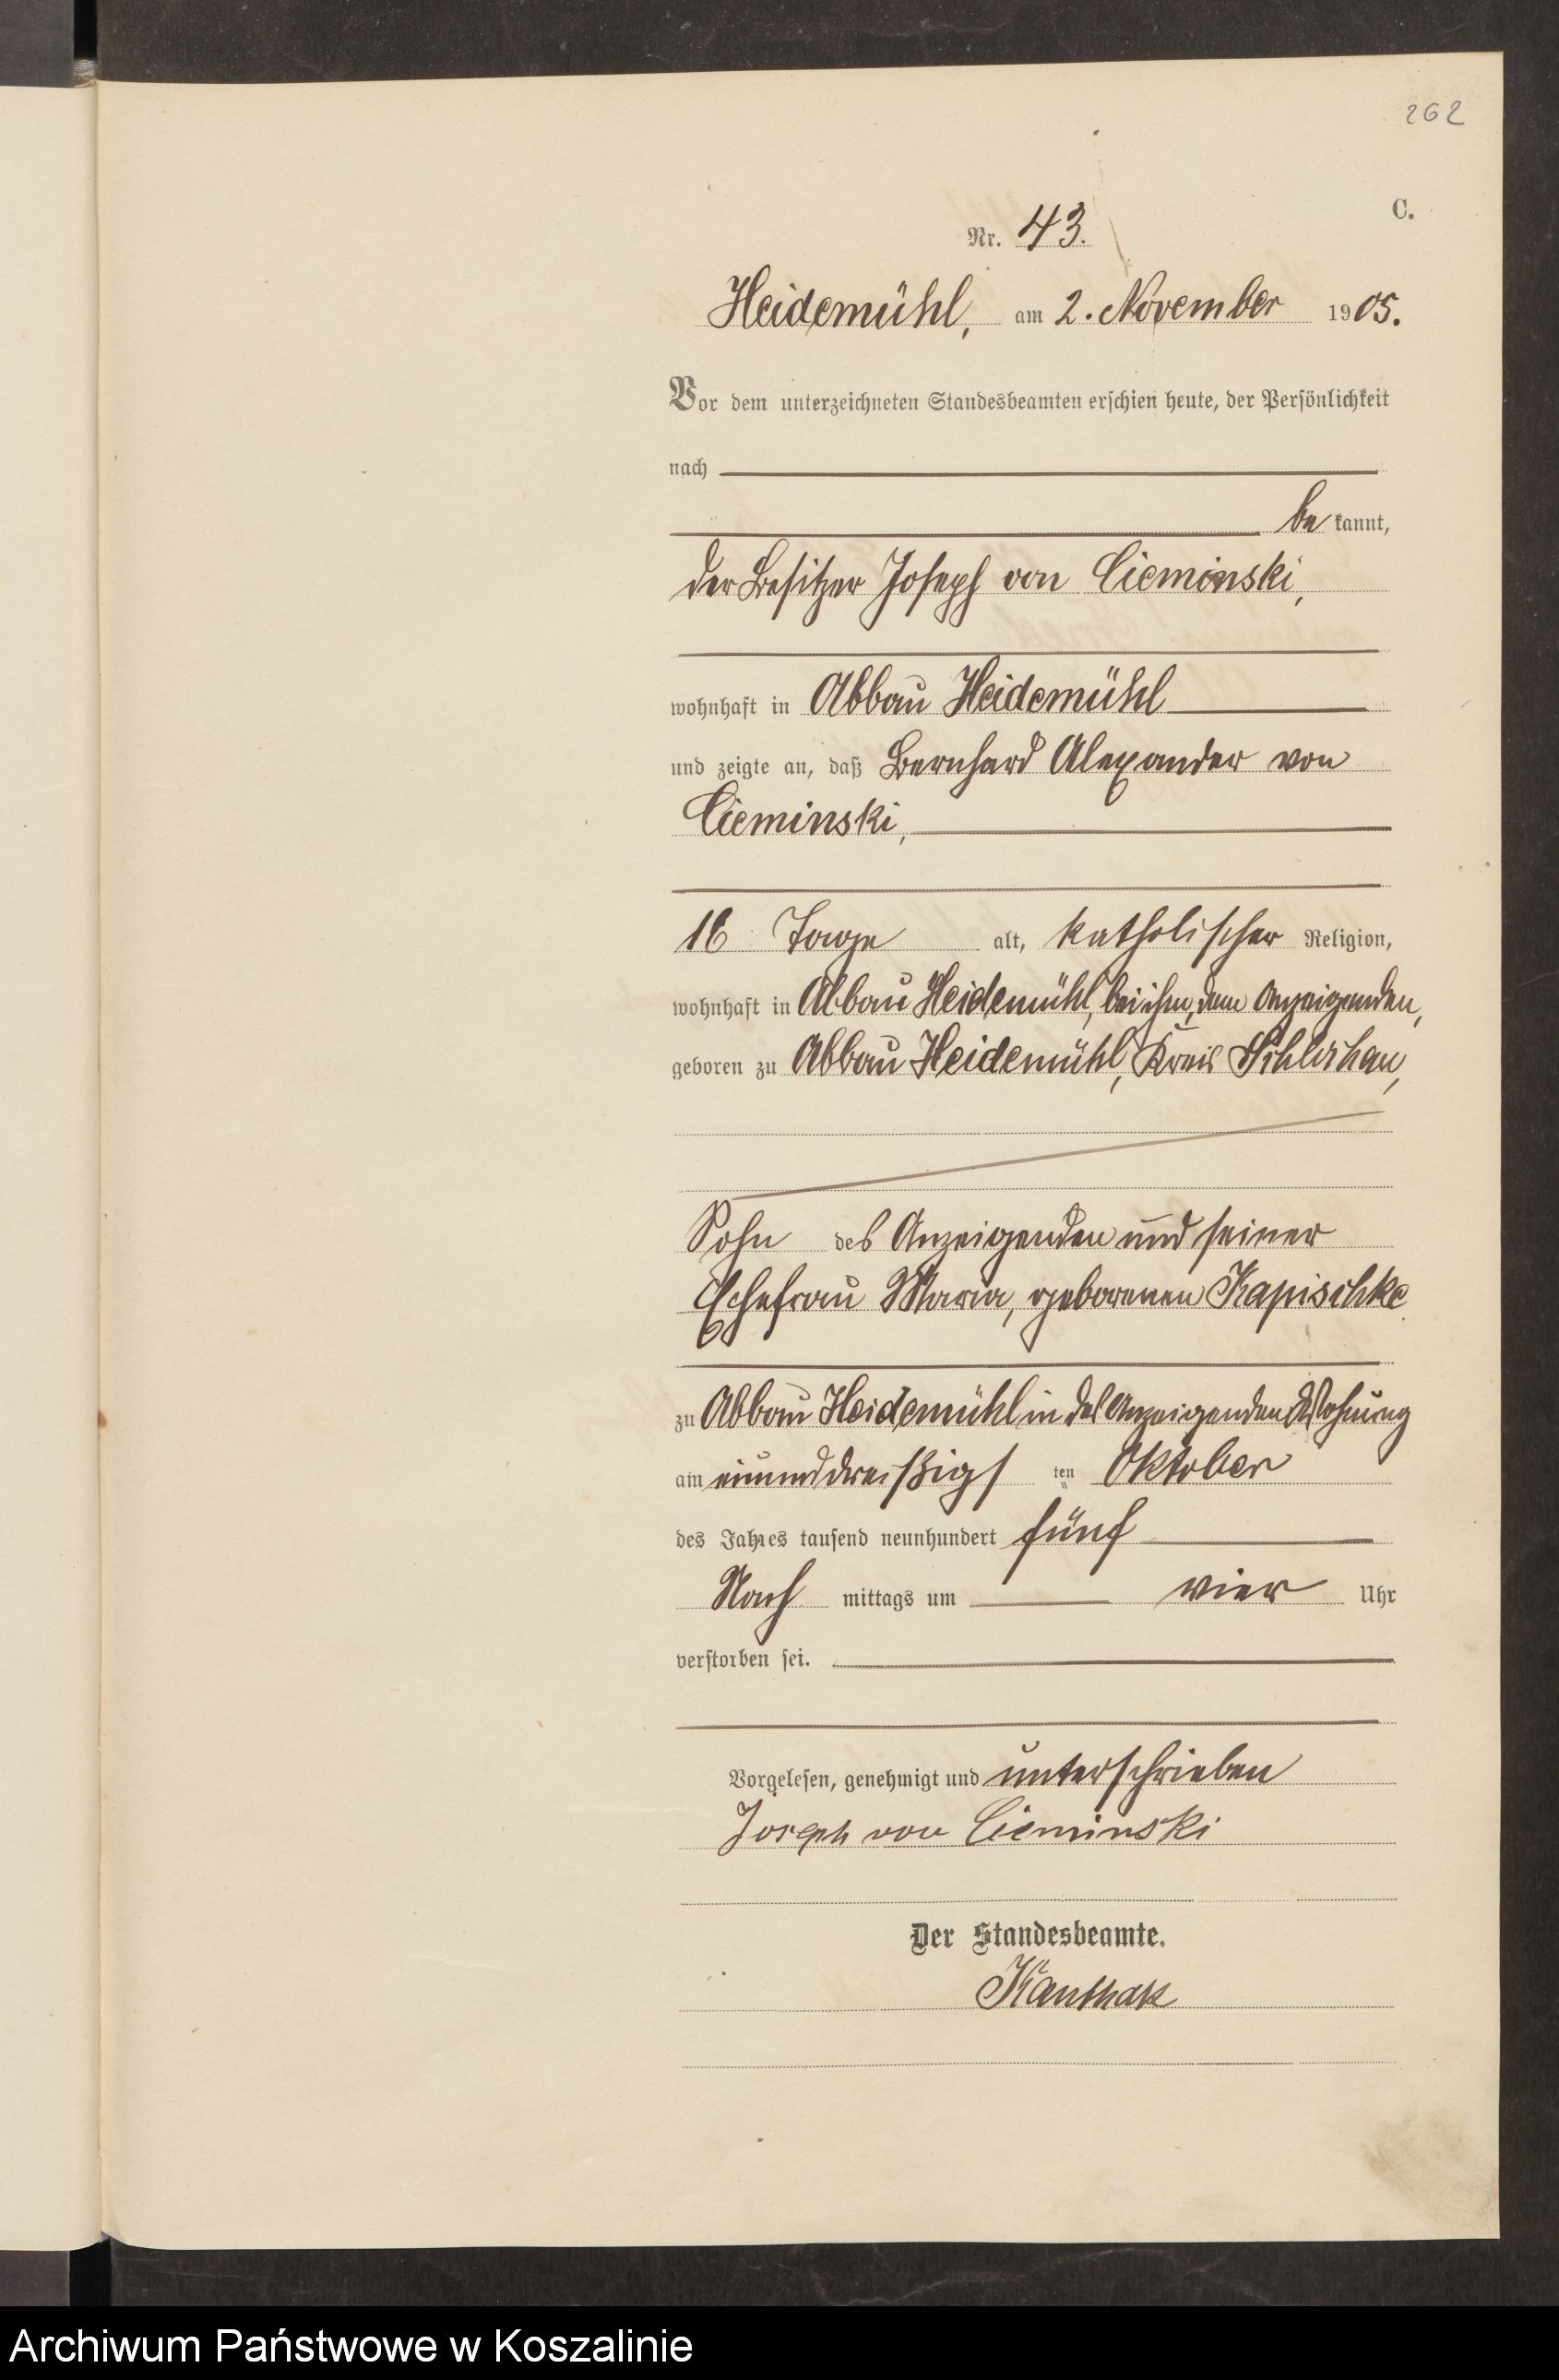 262
C.
Nr. 43.
Heidemühl, am 2. November 1905.
Vor dem unterzeichneten Standesbeamten erschien heute, der Persönlichkeit
nach
be kannt,
der Besitzer Joseph von Cieminski,
wohnhaft in Abbau Heidemühl
und zeigte an, daß Bernhard Alexander von
Cieminski,
16 Tage alt, katholischer Religion,
wohnhaft in Abbau Heidemühl, bei ihm, dem Anzeigenden,
geboren zu Abbau Heidemühl, Kreis Schlochau,
Sohn des Anzeigenden und seiner
Ehefrau Maria, geborenen Kapischke
zu Abbau Heidemühl in des Anzeigenden Wohnung
am einunddreißigs ten Oktober
des Jahres tausend neunhundert fünf
Nach mittags um vier Uhr
verstorben sei.
Vorgelesen, genehmigt und unterschrieben
Joseph von Cieminski
Der Standesbeamte.
Kanthak
Archiwum Państwowe w Koszalinie